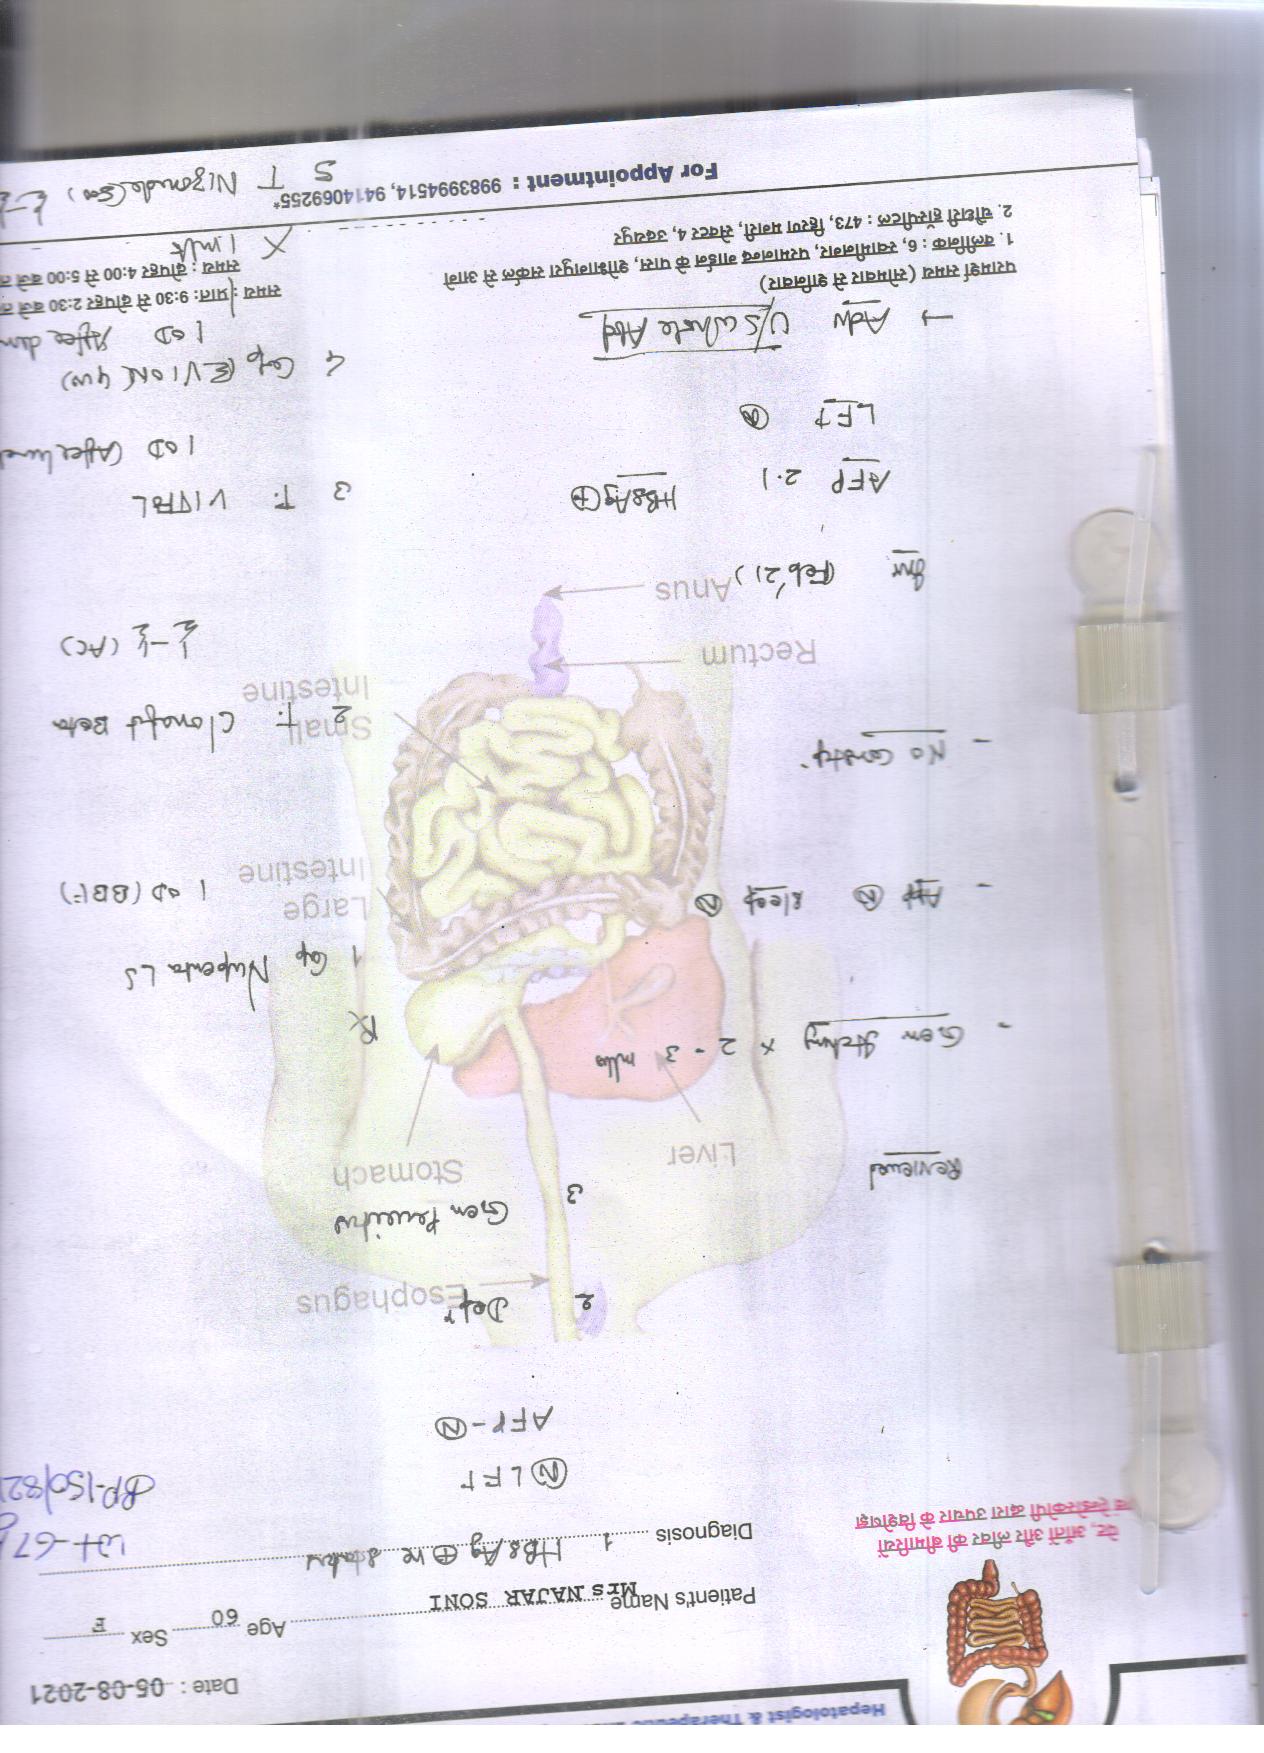 Hepatologist & Therapeutic
Date : 05-08-2021
Patient's Name Mrs NAJAR SONI Age 60 Sex F
पेट, आंतों और लीवर की बीमारियों
एन्डोस्कोपी द्वारा उपचार के विशेषज्ञ
Diagnosis 1 HBsAg ⊕ve status
Wt-67
BP-150/82
Ⓝ LFT
AFP-Ⓝ
2 Depr
Esophagus
3 Gen Pruritus
Reviewed
Liver
Stomach
- Gen Itching x 2-3 mths
- App Ⓝ Sleep Ⓝ
- No Constip.
Rectum
Anus
Inv (Feb'21)
AFP 2.1 HBsAg ⊕
LFT Ⓝ
→ Adv U/S Whole Abd
Rx
1 Cap Nupenta LS
1 OD (BBF)
Large
Intestine
2 T. Clonafit Beta
½-½ (AC)
Small
Intestine
3 T. VITAL
1 OD (After lunch
4 Cap (EVION 400)
1 OD After dinn
X 1 mth
5 T Nizonide (500)
परामर्श समय (सोमवार से शनिवार)
1. क्लीनिक : 6, स्वामीनगर, परमानन्द गार्डन के पास, शोभागपुरा सर्कल से आगे
समय : प्रातः 9:30 से दोपहर 2:30 बजे
2. चौधरी हॉस्पीटल : 473, हिरण मगरी, सेक्टर 4, उदयपुर
समय : दोपहर 4:00 से 5:00 बजे
For Appointment : 9983994514, 9414069255*